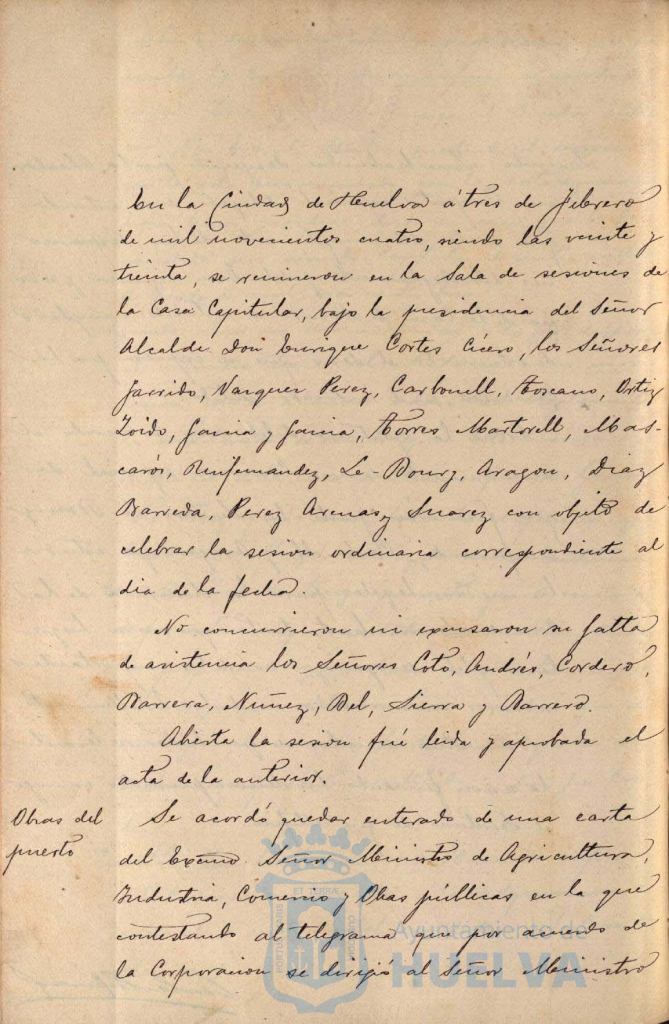 En la Ciudad de Huelva á tres de Febrero
de mil novecientos cuatro, siendo las veinte y
treinta, se reunieron en la Sala de sesiones de
la Casa Capitular, bajo la presidencia del Señor
Alcalde Don Enrique Cortes Cícero, los Señores
Garrido, Vazquez Perez, Carbonell, Toscano, Ortiz
Zoido, Garcia y Garcia, Torres Martorell, Mas-
carós, Ruifernandez, Le-Bourg, Aragon, Diaz
Barreda, Perez Arenas y Suarez con objeto de
celebrar la sesion ordinaria correspondiente al
dia de la fecha.
No concurrieron ni excusaron su falta
de asistencia los Señores Coto, Andrés, Cordero,
Barrera, Nuñez, Bel, Sierra y Barrero.
Abierta la sesion fué leida y aprobada el
acta de la anterior.
Obras del
puerto
Se acordó quedar enterado de una carta
del Excmo Señor Ministro de Agricultura,
Industria, Comercio y Obras públicas en la que
contestando al telegrama que por acuerdo de
la Corporacion se dirigió al Señor Ministro
Ayuntamiento de
HUELVA